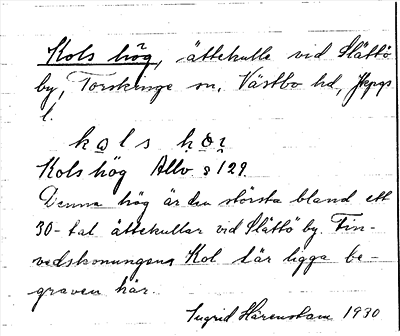 Kols hög, ättekulle vid Slättö
by, Torskinge sn, Västbo hd, Jkpgs
l.
Kols hög Allv s 129.
Denna hög är den största bland ett
30-tal ättekullar vid Slättö by. Fin-
vedskonungen Kol lär ligga be-
graven här.
Ingrid Härenstam 1930